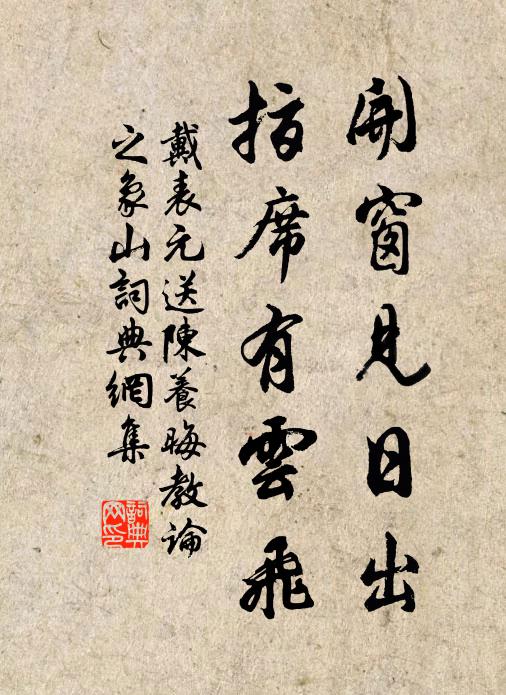 開窗見日出
指席有雲飛
戴表元送陳養晦教論
之象山詞典網集
詞典
网印